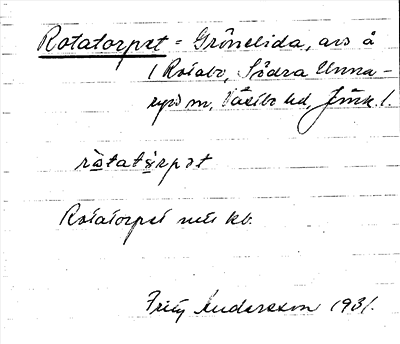 Rotatorpet = Grönelida, avs å
( Rotabo, Södra Unna-
ryd sn, Västbo hd, Jönk. ).
rọ̀tatọrpət
Rotatorpet nu kb.
Fritz Andersson 1931.